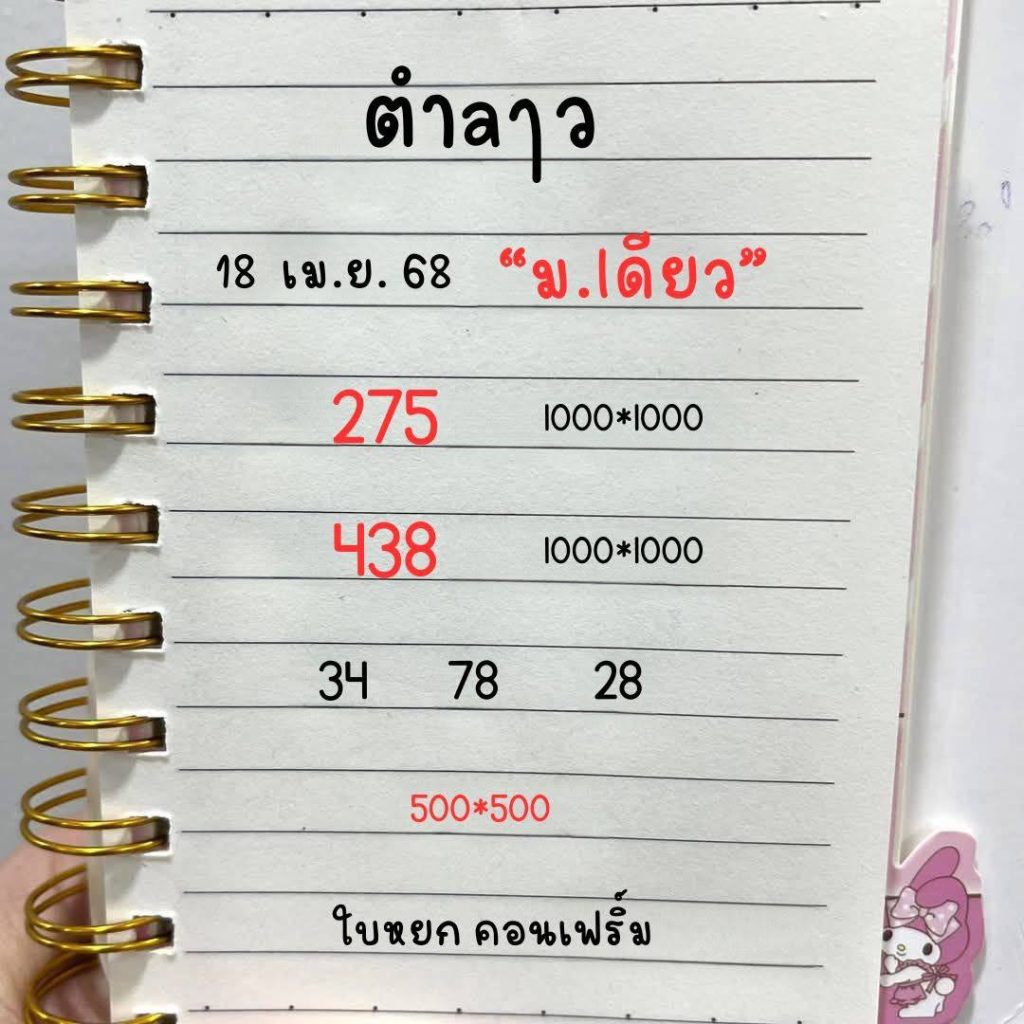 ตำลาว
18 เม.ย. 68 “ม.เดียว”
275 1000*1000
438 1000*1000
34 78 28
500*500
ใบหยก คอนเฟริ์ม